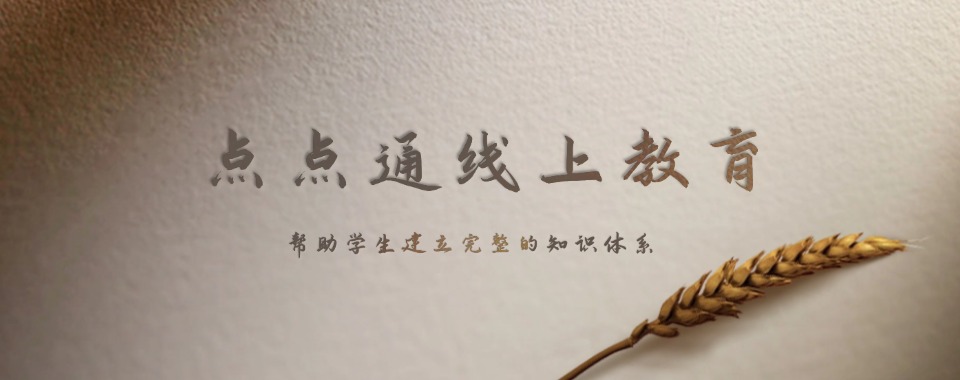 点点通线上教育
帮助学生建立完整的知识体系